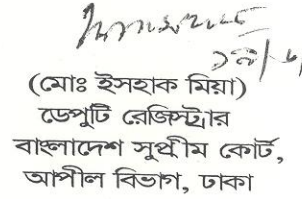 (মোঃ ইসহাক মিয়া)
ডেপুটি রেজিস্ট্রার
বাংলাদেশ সুপ্রীম কোর্ট,
আপীল বিভাগ, ঢাকা